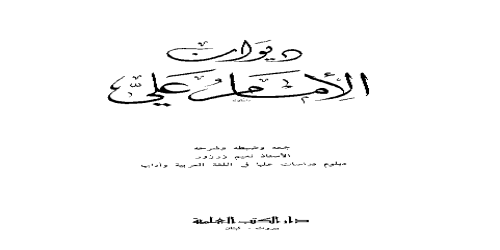 ديوان
الإمام علي
جمعه وضبطه وشرحه
الأستاذ نعيم زرزور
دبلوم دراسات عليا في اللغة العربية وآدابها
دار الكتب العلمية
بيروت - لبنان